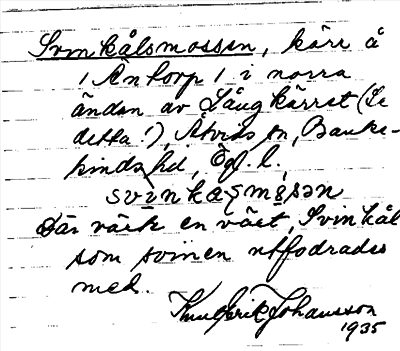 Svinkålsmossen, kärr å
1 Äntorp 1 i norra
ändan av Långkärret (Se
detta!), Åtvids sn, Banke-
kinds hd, Ögl. l.
svinkaṣmosən
Där växte en växt, Svinkål
som svinen utfodrades
med.
Knut Erik Johansson
1935